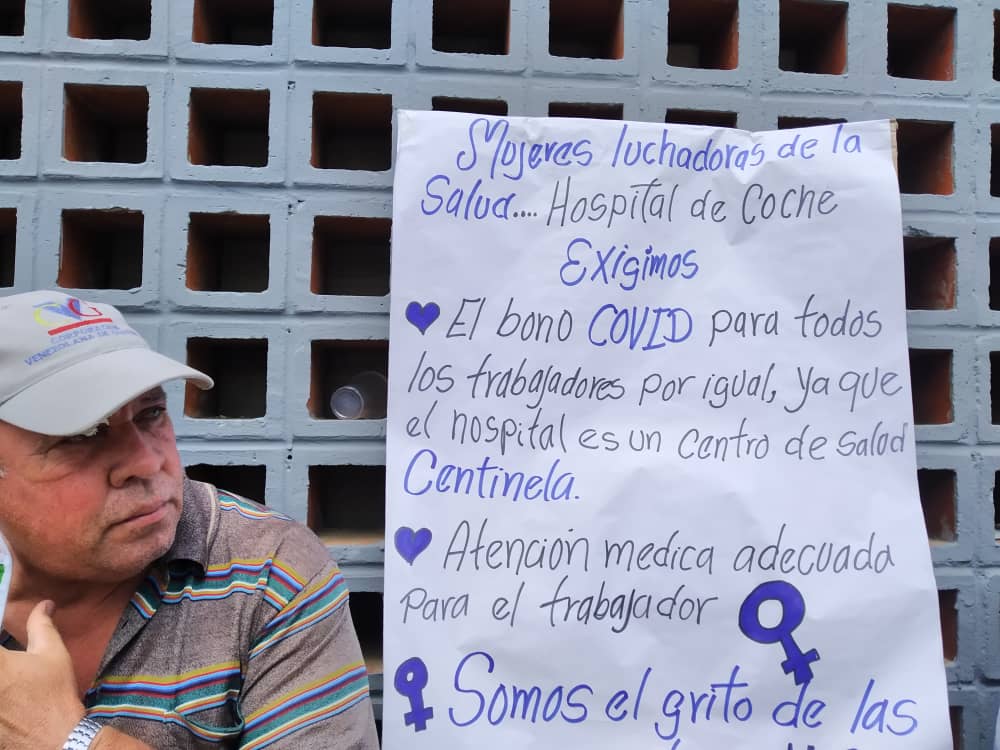 CORPORACION
VENEZOLANA DE
Mujeres luchadoras de la
Salud.... Hospital de Coche
Exigimos
El bono COVID para todos
los trabajadores por igual, ya que
el hospital es un centro de salud
Centinela.
Atención medica adecuada
para el trabajador
Somos el grito de las